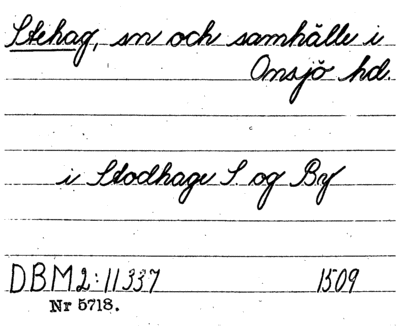 Stehag, sn och samhälle i
Onsjö hd.
i Stodhage S. og By
DBM 2:11337 1509
Nr 5718.